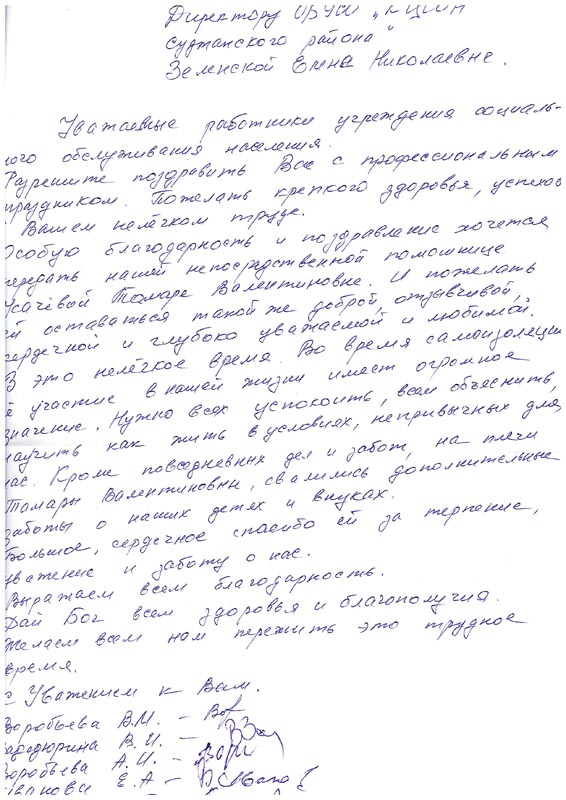 Директору ОБУСО „КЦСОН
Суджанского района"
Зеленской Елене Николаевне.
Уважаемые работники учреждения социаль-
ного обслуживания населения.
Разрешите поздравить Вас с профессиональным
праздником. Пожелать крепкого здоровья, успехов
Вашем нелёгком труде.
Особую благодарность и поздравление хочется
передать нашей непосредственной помощнице
Усачёвой Тамаре Валентиновне. И пожелать
ей оставаться такой же доброй, отзывчивой,
сердечной и глубоко уважаемой и любимой.
В это нелёгкое время. Во время самоизоляции
её участие в нашей жизни имеет огромное
значение. Нужно всех успокоить, всем объяснить,
научить как жить в условиях, непривычных для
нас. Кроме повседневных дел и забот, на плечи
Тамары Валентиновны, свалились дополнительные
заботы о наших детях и внуках.
Большое, сердечное спасибо ей за терпение,
уважение и заботу о нас.
Выражаем всем благодарность.
Дай Бог всем здоровья и благополучия.
Желаем всем нам пережить это трудное
время.
с Уважением к Вам.
Воробьева В.М. –
В.И. –
Воробьева А.И. –
Иванова Е.А –